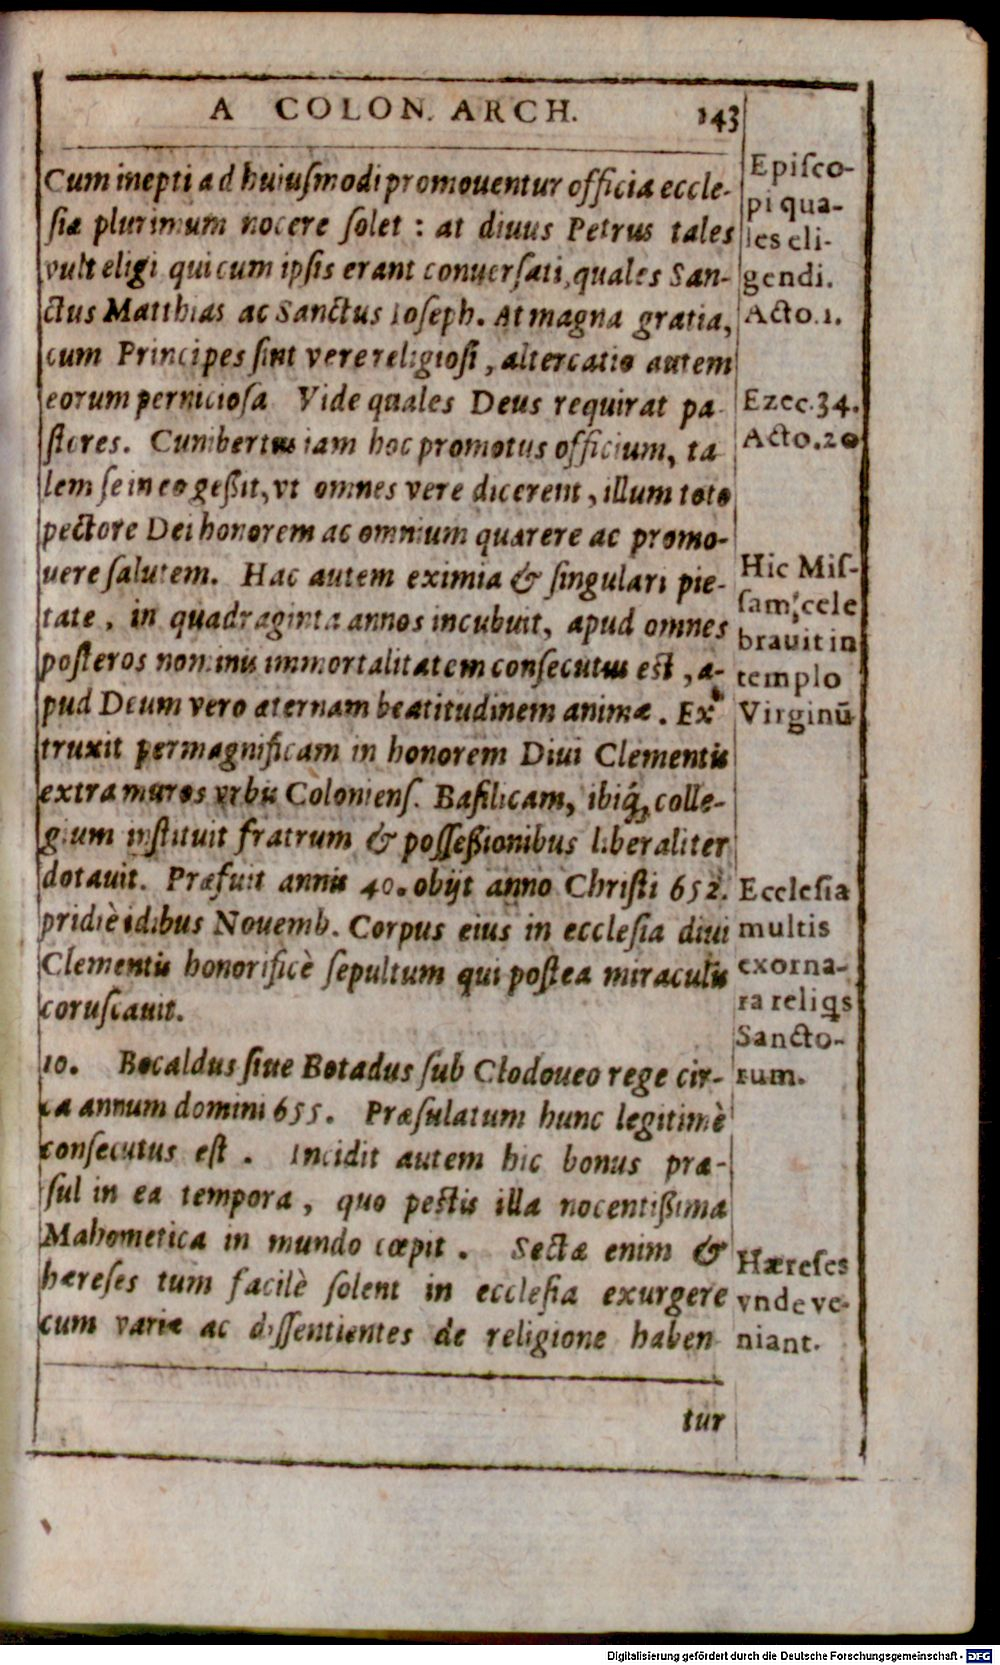 A COLON. ARCH. 143
Cum inepti ad huiusmodi promouentur officia eccle-
siæ plurimum nocere solet : at diuus Petrus tales
vult eligi qui cum ipsis erant conuersati, quales San-
ctus Matthias ac Sanctus Ioseph. At magna gratia,
cum Principes sint vere religiosi, altercatio autem
eorum perniciosa Vide quales Deus requirat pa
stores. Cunibertus iam hoc promotus officium, ta
lem se in eo geßit, vt omnes vere dicerent, illum toto
pectore Dei honorem ac omnium quærere ac promo-
uere salutem. Hac autem eximia & singulari pie-
tate, in quadraginta annos incubuit, apud omnes
posteros nominis immortalitatem consecutus est, a-
pud Deum vero æternam beatitudinem animæ. Ex
truxit permagnificam in honorem Diui Clementis
extra muros vrbis Coloniens. Basilicam, ibiq́; colle-
gium instituit fratrum & posseßionibus liberaliter
dotauit. Præfuit annis 40. obijt anno Christi 652.
pridiè idibus Nouemb. Corpus eius in ecclesia diui
Clementis honorificè sepultum qui postea miraculis
coruscauit.
10. Bocaldus siue Botadus sub Clodoueo rege cir-
ca annum domini 655. Præsulatum hunc legitimè
consecutus est. Incidit autem hic bonus præ-
sul in ea tempora, quo pestis illa nocentißima
Mahometica in mundo cœpit. Sectæ enim &
hæreses tum facilè solent in ecclesia exurgere
cum variæ ac dissentientes de religione haben
tur
Episco-
pi qua-
les eli-
gendi.
Acto.1.
Ezec.34.
Acto.20
Hic Mis-
sam cele
brauit in
templo
Virginū
Ecclesia
multis
exorna-
ra reliqs
Sancto-
rum.
Hæreses
vnde ve-
niant.
Digitalisierung gefördert durch die Deutsche Forschungsgemeinschaft - DFG